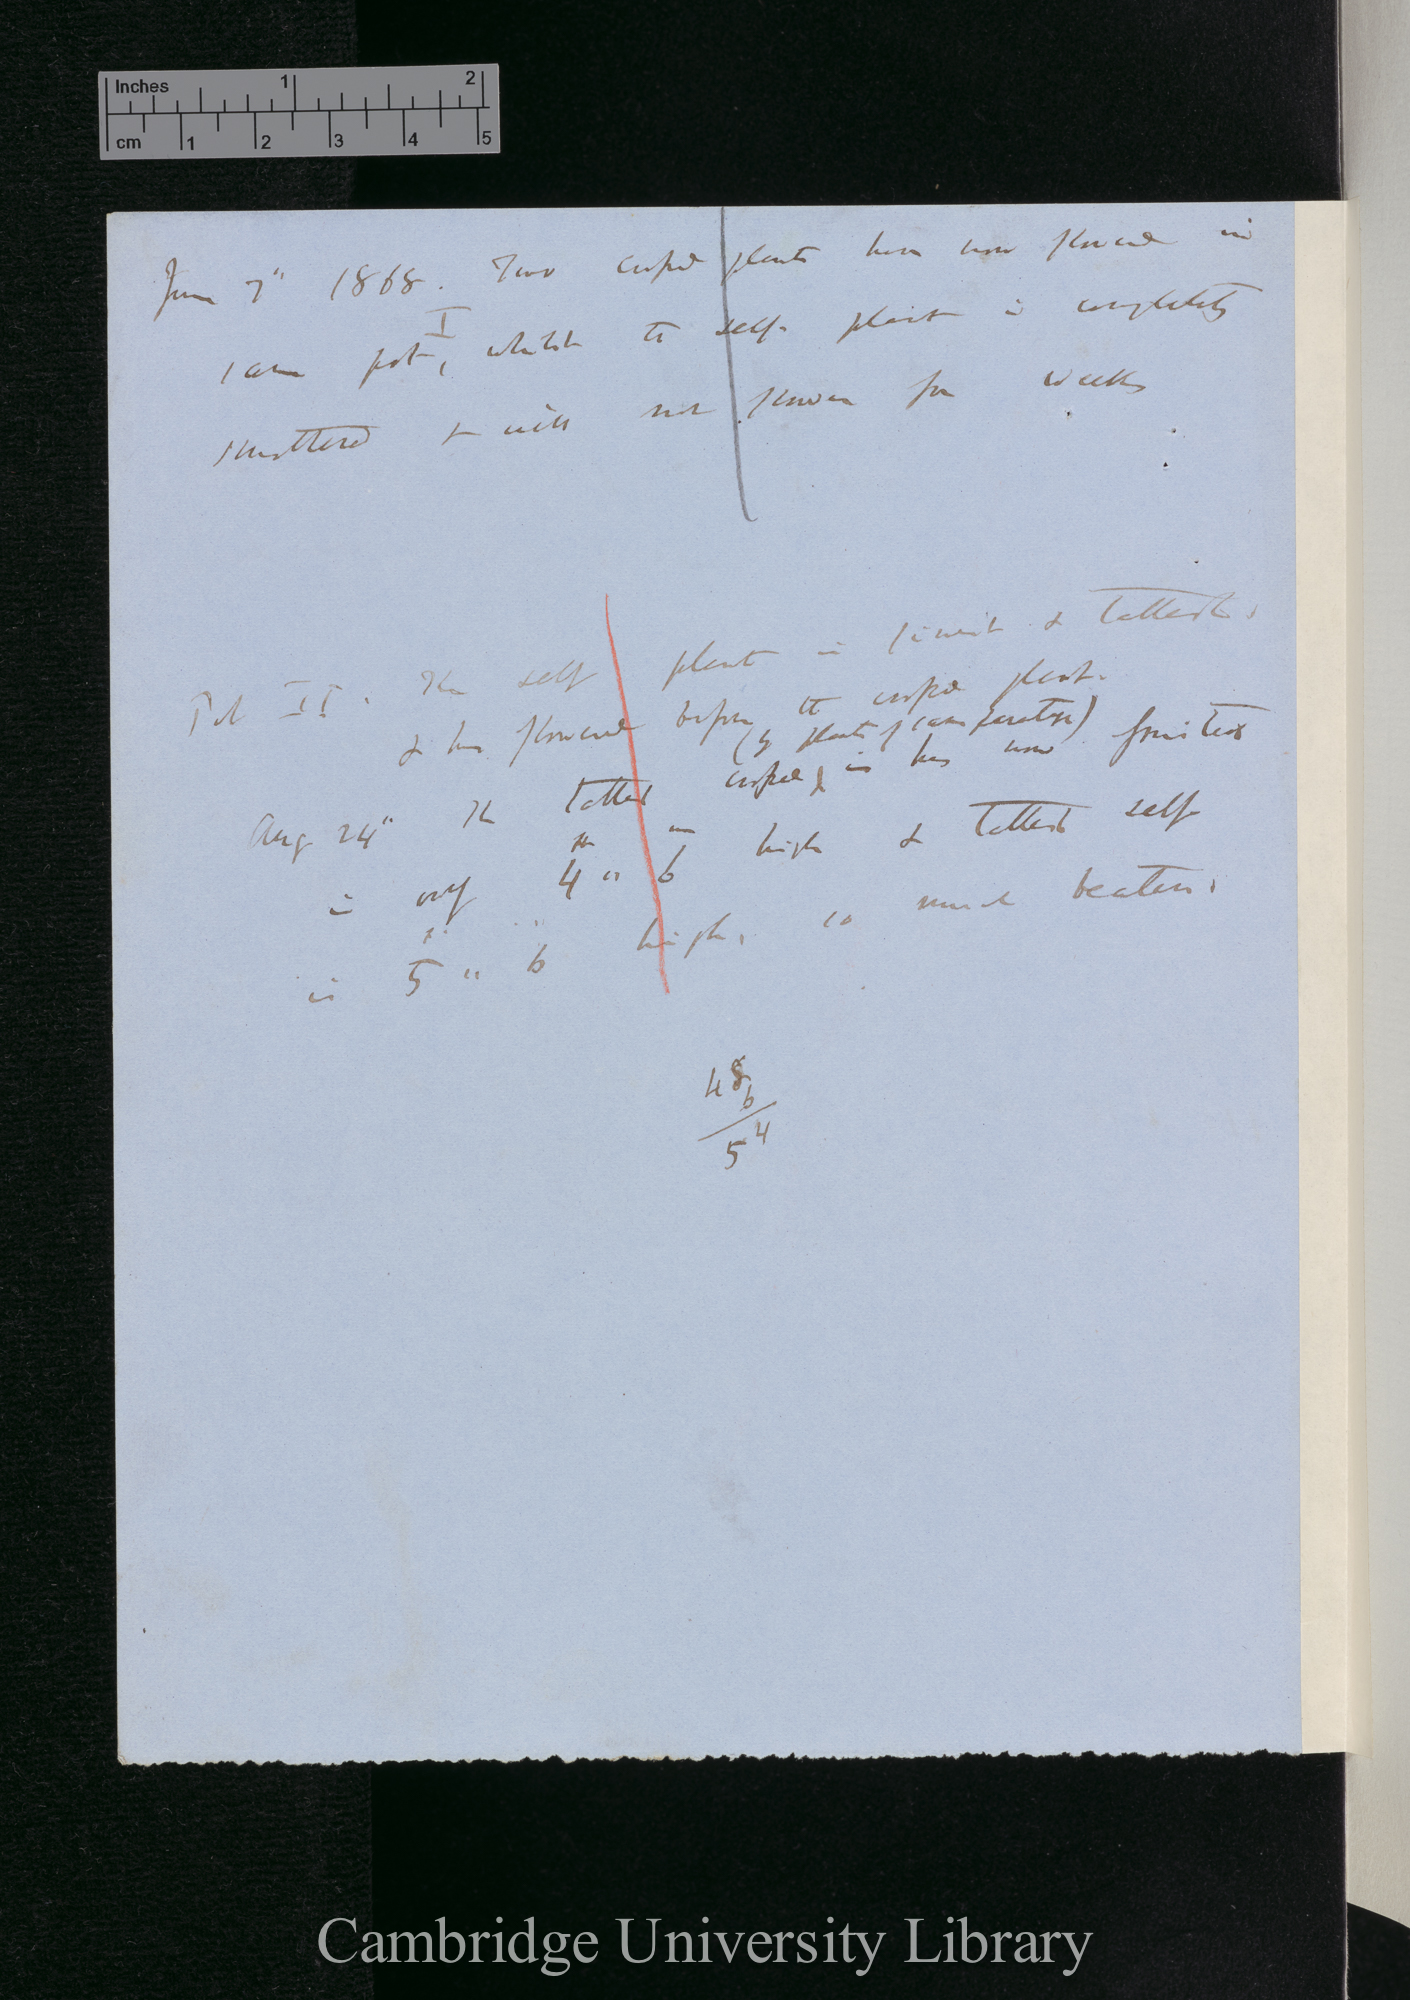 Inches 1 2
cm 1 2 3 4 5
June 7" 1868. Two crossed plants have now flowered in
same pot I, whilst the self- plant is completely
smothered & will not flower for weeks
Pot II. The self plant is finest & tallest.
& has flowered before the crossed plant.
(by plants
Aug 24" The tallest crossed, has now fruited
is only 4 " 6 high & tallest self
is 5 " 6 high, so much beaten.
48
6
54
Cambridge University Library